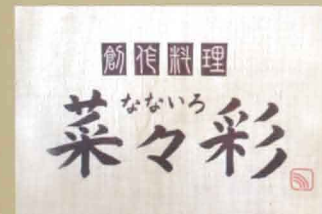 創作料理
なないろ
菜々彩